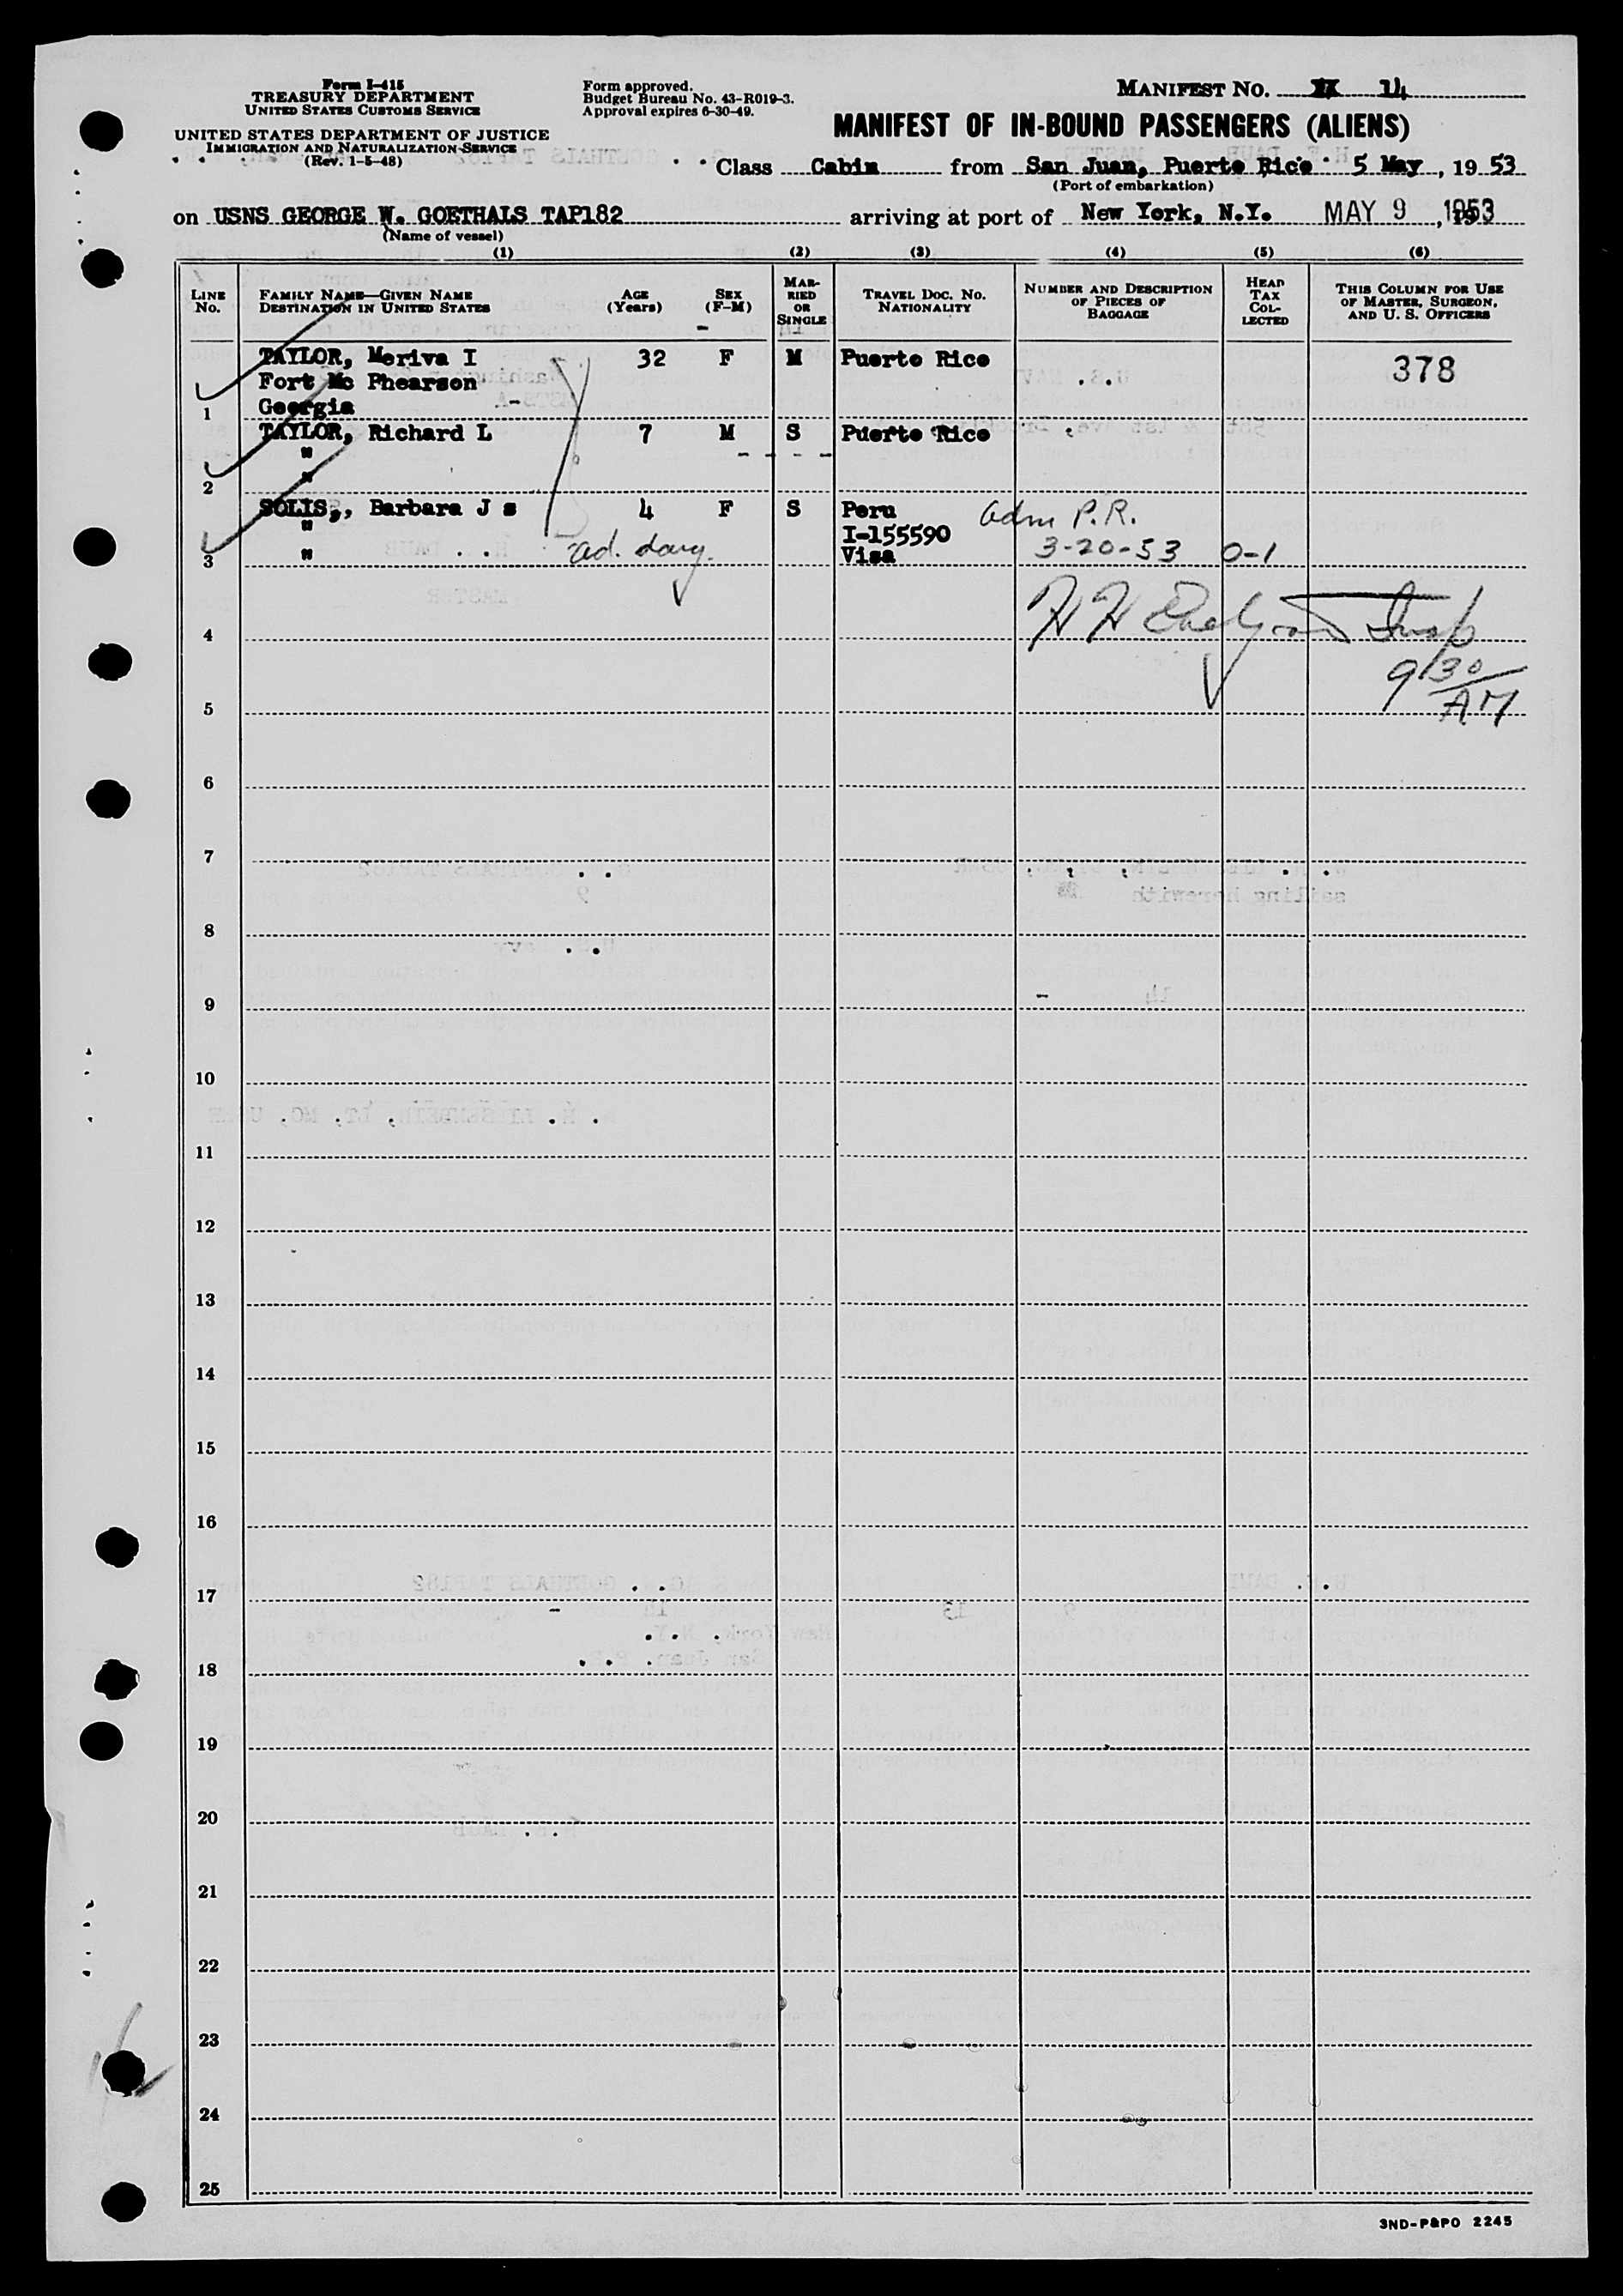 Form I-415
TREASURY DEPARTMENT
UNITED STATES CUSTOMS SERVICE
UNITED STATES DEPARTMENT OF JUSTICE
IMMIGRATION AND NATURALIZATION SERVICE
(Rev. 1-5-48)
Form approved.
Budget Bureau No. 43-R019-3.
Approval expires 6-30-49.
MANIFEST No. 14
MANIFEST OF IN-BOUND PASSENGERS (ALIENS)
Class Cabin from San Juan, Puerto Rico 5 May, 19 53
(Port of embarkation)
on USNS GEORGE W. GOETHALS TAP182 arriving at port of New York, N.Y. MAY 9, 1953
(Name of vessel)
(1) (2) (3) (4) (5) (6)
LINE No. FAMILY NAME—GIVEN NAME DESTINATION IN UNITED STATES AGE (Years) SEX (F-M) MARRIED OR SINGLE TRAVEL DOC. No. NATIONALITY NUMBER AND DESCRIPTION OF PIECES OF BAGGAGE HEAD TAX COLLECTED THIS COLUMN FOR USE OF MASTER, SURGEON, AND U. S. OFFICERS
TAYLOR, Meriva I 32 F M Puerto Rico 378
Fort Mc Phearson
1 Georgia
TAYLOR, Richard L 7 M S Puerto Rico
"
2 "
SOLIS,, Barbara J s 4 F S Peru Adm P.R.
" I-155590
3 " ad. daug. Visa 3-20-53 0-1
4 H H Insp
9/30
5 AM
6
7
8
9
10
11
12
13
14
15
16
17
18
19
20
21
22
23
24
25
3ND-P&PO 2245